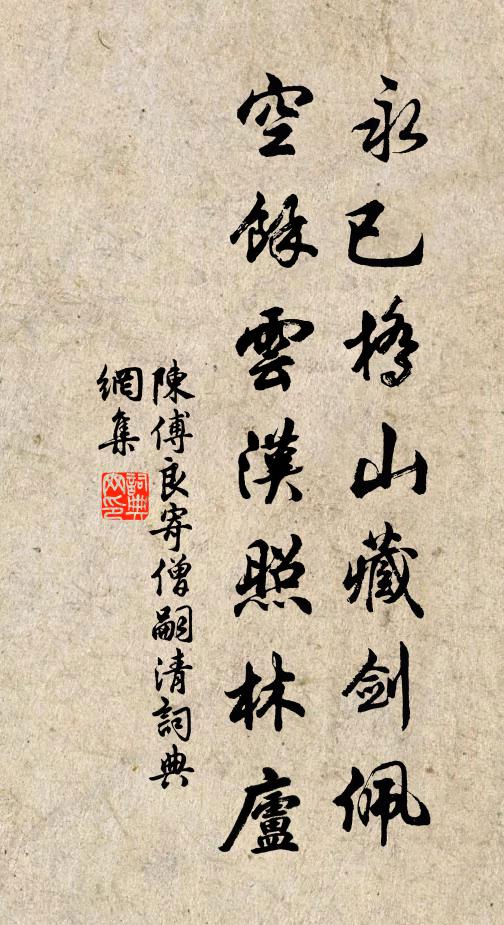 永已橋山藏劍佩
空餘雲漢照林廬
陳傅良寄僧嗣清詞典
網集
詞典